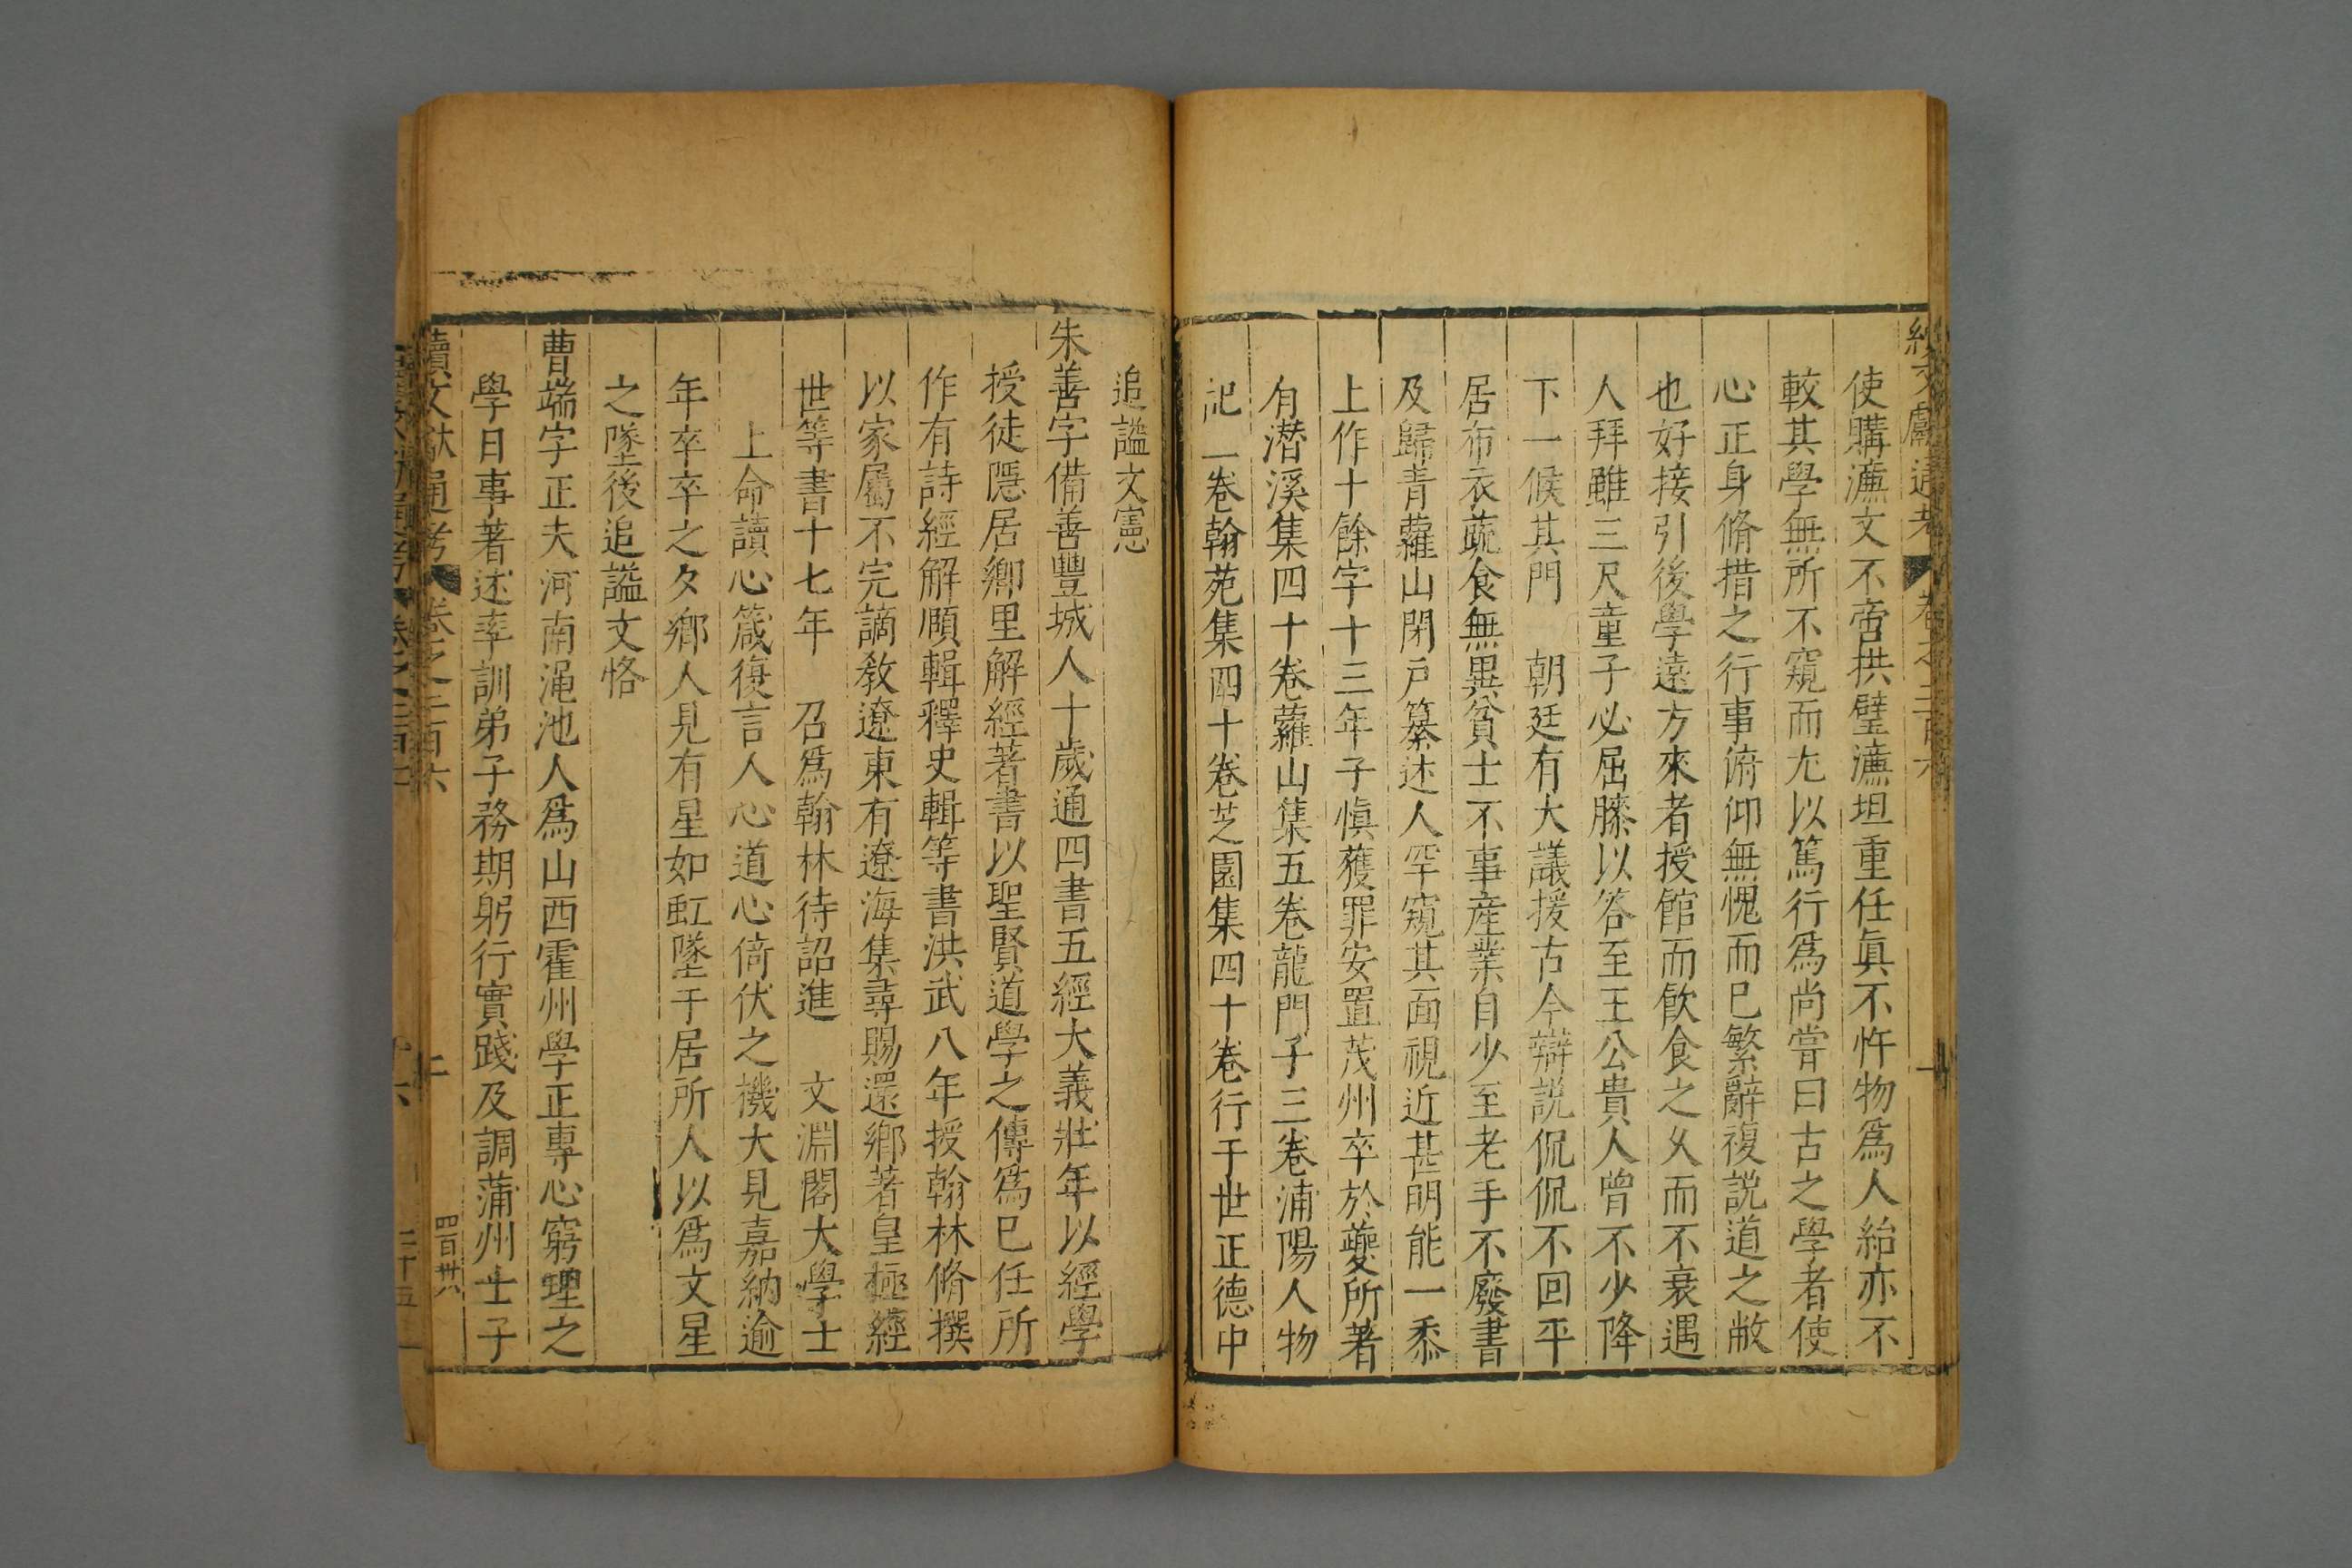 續文獻通考 卷之二百六
使購濂文不啻拱璧濂坦重任眞不忤物爲人紿亦不
較其學無所不窺而尢以篤行爲尚嘗曰古之學者使
心正身脩措之行事俯仰無愧而已繁辭複説道之敝
也好接引後學遠方來者授館而飮食之乆而不衰遇
人拜雖三尺童子必屈膝以答至王公貴人曾不少降
下一候其門 朝廷有大議援古今辯説侃侃不回平
居布衣蔬食無異貧士不事産業自少至老手不廢書
及歸青蘿山閉戸纂述人罕窺其面視近甚明能一黍
上作十餘字十三年子愼獲罪安置茂州卒於夔所著
有潜溪集四十卷蘿山集五卷龍門子三卷浦陽人物
記一卷翰苑集四十卷芝園集四十卷行于世正德中
追謚文憲
朱善字備善豐城人十歲通四書五經大義壯年以經學
授徒隱居鄉里解經著書以聖賢道學之傳爲已任所
作有詩經解頤輯釋史輯等書洪武八年授翰林脩撰
以家屬不完謫教遼東有遼海集尋賜還鄉著皇極經
世等書十七年 召爲翰林待詔進 文淵閣大學士
上命讀心箴復言人心道心倚伏之機大見嘉納逾
年卒卒之夕鄉人見有星如虹墜于居所人以爲文星
之墜後追謚文恪
曹端字正夫河南澠池人爲山西霍州學正專心窮理之
學日事著述率訓弟子務期躬行實踐及調蒲州士子
續文獻通考 卷之二百六 四百卅六